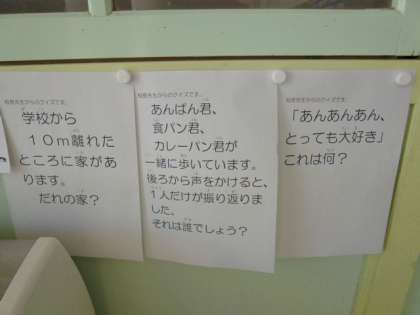 校長先生からのクイズです。
学校から
１０ｍ離れた
ところに家があ
ります。
だれの家？
校長先生からのクイズです。
あんぱん君、
食パン君、
カレーパン君が
一緒に歩いています。
後ろから声をかけると、
１人だけが振り返りま
した。
それは誰でしょう？
校長先生からのクイズです。
「あんあんあん、
とっても大好き」
これは何？